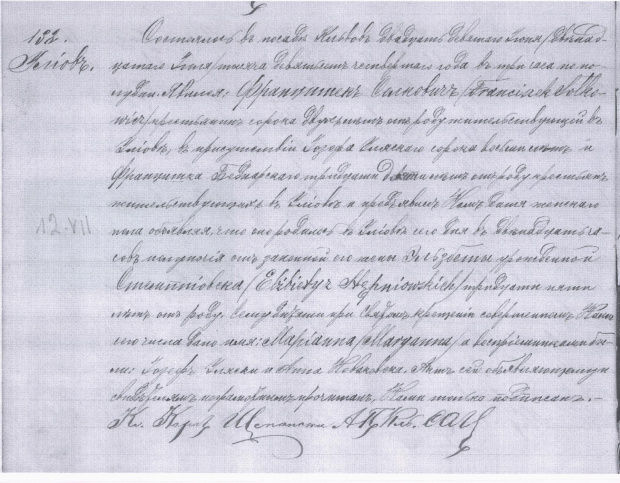 132.
Уліовъ.
Состоялось въ посадѣ двадцать девятаго Іюня /двѣнад-
цатаго Іюля/ тысяча девятьсотъ четвертаго года въ три часа по по-
лудни. Явился: Францишекъ Солковичъ /Francischek Solko-
wicz/ крестьянинъ сорока двухъ лѣтъ отъ роду жительствующій въ
Уліовѣ, въ присутствіи Іозефа сорока восьми лѣтъ и
Францишка Беднарскаго тридцати лѣтъ отъ роду крестьянъ
жительствующихъ въ Уліовѣ и предъявилъ Намъ дитя женскаго
пола объявляя, что оно родилось въ Уліовѣ его дня въ двѣнадцать ча-
совъ полудня отъ законной его жены Эльжбеты урожденной
/Elżbiety z Stępniowskich/ тридцати пяти
лѣтъ отъ роду. Сему дитяти при Святомъ крещеніи совершенномъ Нами
сего числа дано имя: Маріанна /Maryanna/ а воспріемниками бы-
ли: Іозефъ и Анна Новаковска. Актъ сей объявляющему и
свидѣтелямъ неграмотнымъ прочитанъ, Нами только подписанъ. -
Кс. Кароль
12.VII